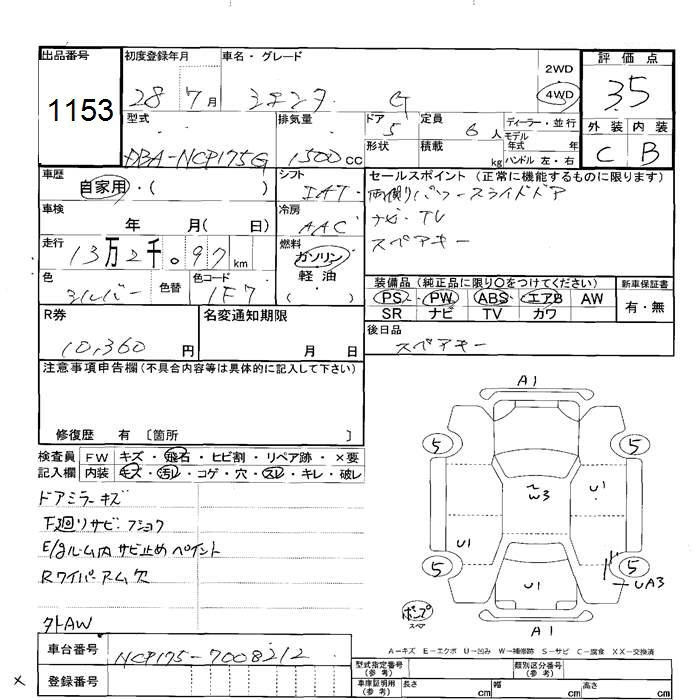 出品番号
1153
初度登録年月
28 7月
車名・グレード
シエンタ G
2WD
4WD
評価点
3.5
外装 内装
C B
型式
DBA-NCP175G
排気量
1500cc
ドア
5
定員
6人
形状
積載
kg
ディーラー・並行
モデル
年式 年
ハンドル 左・右
車歴
自家用・( )
シフト
IAT
車検
年 月( 日)
冷房
AAC
走行
13万2千097km
燃料
ガソリン
軽油
( )
色
シルバー
色替
色コード
1F7
セールスポイント(正常に機能するものに限ります)
両側パワースライドドア
ナビ・TV
スペアキー
装備品(純正品に限り〇をつけてください)
PS・PW・ABS・エアB AW
SR ナビ TV カワ
新車保証書
有・無
R券
10,360円
名変通知期限
月 日
後日品
スペアキー
注意事項申告欄(不具合内容等は具体的に記入して下さい)
修復歴 有〔箇所 〕
検査員
記入欄
FW キズ・飛石・ヒビ割・リペア跡・×要
内装 モズ・汚レ・コゲ・穴・スレ・キレ・破レ
ドアミラーキズ
F廻りサビ・フショク
E/gルーム内サビ止めペイント
Rワイパーアーム欠
外AW
A1
5 5
W3
U1
U1
5 5
U1
UA3
ポンプ
スペア
A1
A-キズ E-エクボ U-凹み W-補修跡 S-サビ C-腐食 XX-交換済
車台番号
NCP175-7008212
× 登録番号
型式指定番号
(参考)
類別区分番号
(参考)
車庫証明用
(参考)
長さ cm
幅 cm
高さ cm